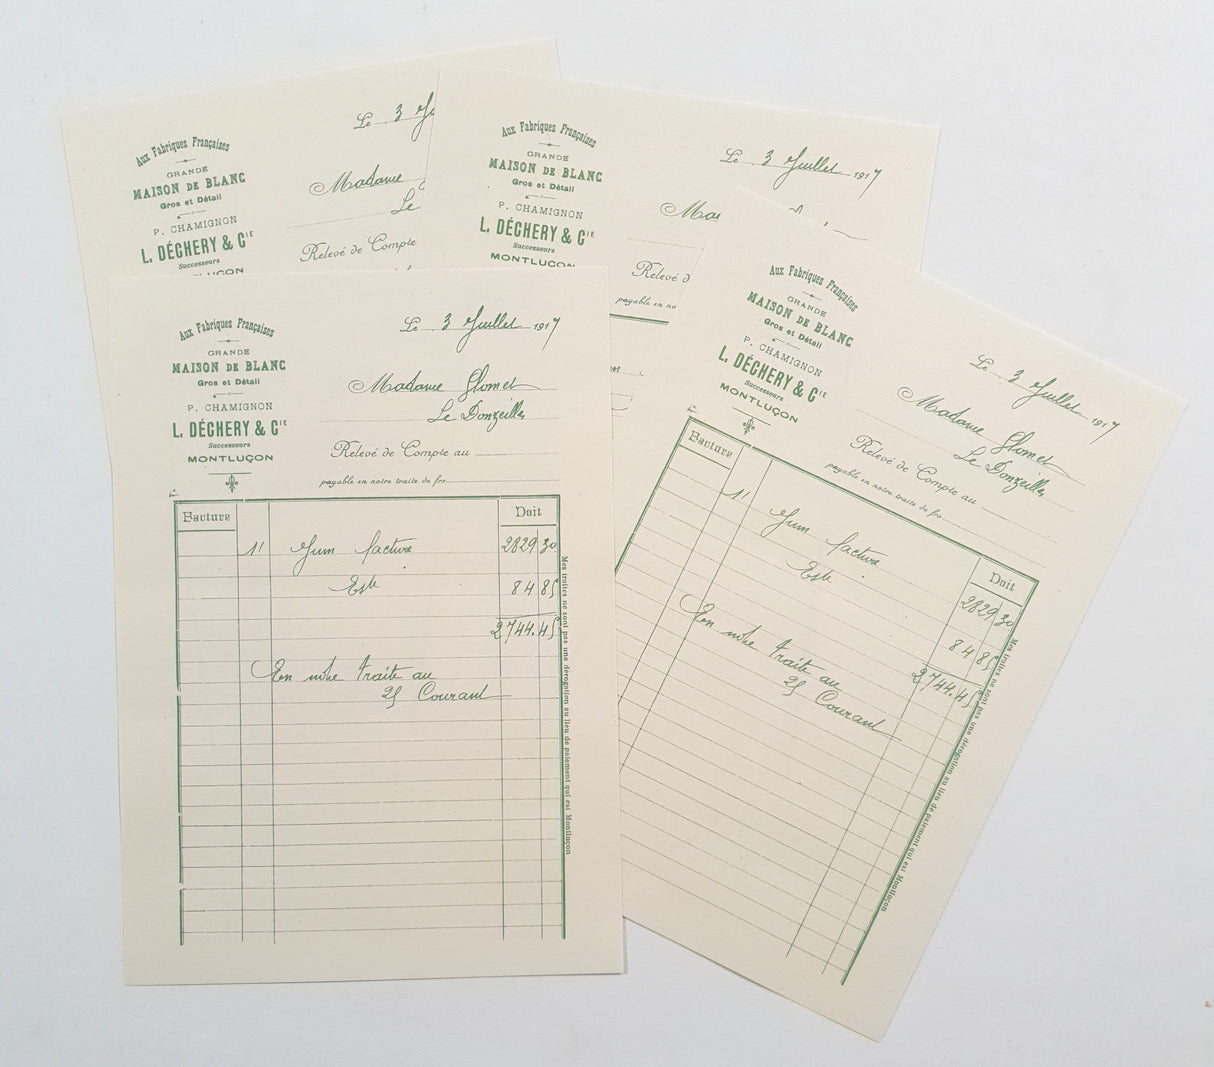 Aux Fabriques Françaises
GRANDE
MAISON DE BLANC
Gros et Détail
P. CHAMIGNON
L. DÉCHERY & Cie
Successeurs
MONTLUÇON
Le 3
Madame
Le
Relevé de Compte
Aux Fabriques Françaises
GRANDE
MAISON DE BLANC
Gros et Détail
P. CHAMIGNON
L. DÉCHERY & Cie
Successeurs
MONTLUÇON
Le 3 Juillet 1917
Relevé d
payable en no
Aux Fabriques Françaises
GRANDE
MAISON DE BLANC
Gros et Détail
P. CHAMIGNON
L. DÉCHERY & Cie
Successeurs
MONTLUÇON
Le 3 Juillet 1917
Madame Glomet
Le Donzeille
Relevé de Compte au
payable en notre traite de frs
Facture
Doit
1' Juin facture 2829 30
Este 84 85
2744.45
En notre traite au
25 Courant
Mes traites ne sont pas une dérogation au lieu de paiement qui est Montluçon
Aux Fabriques Françaises
GRANDE
MAISON DE BLANC
Gros et Détail
P. CHAMIGNON
L. DÉCHERY & Cie
Successeurs
MONTLUÇON
Le 3 Juillet 1917
Madame Glomet
Le Donzeille
Relevé de Compte au
payable en notre traite de frs
Facture
Doit
1' Juin facture 2829 30
Este 84 85
2744.45
En notre traite au
25 Courant
Mes traites ne sont pas une dérogation au lieu de paiement qui est Montluçon